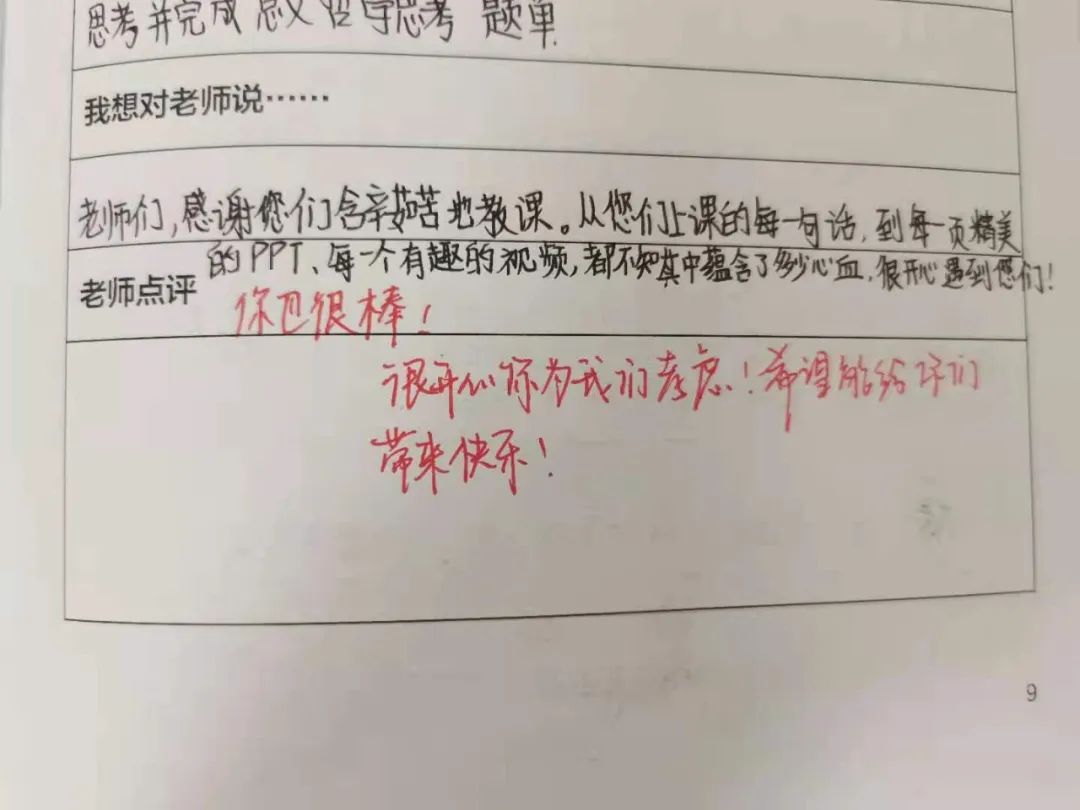 思考并完成总义哲学思考 题单
我想对老师说……
老师们,感谢您们含辛茹苦地教课。从您们上课的每一句话,到每一页精美
的PPT、每一个有趣的视频,都不知其中蕴含了多少心血,很开心遇到您们!
老师点评
你也很棒!
很开心你为我们考虑!希望能给你们
带来快乐!
9